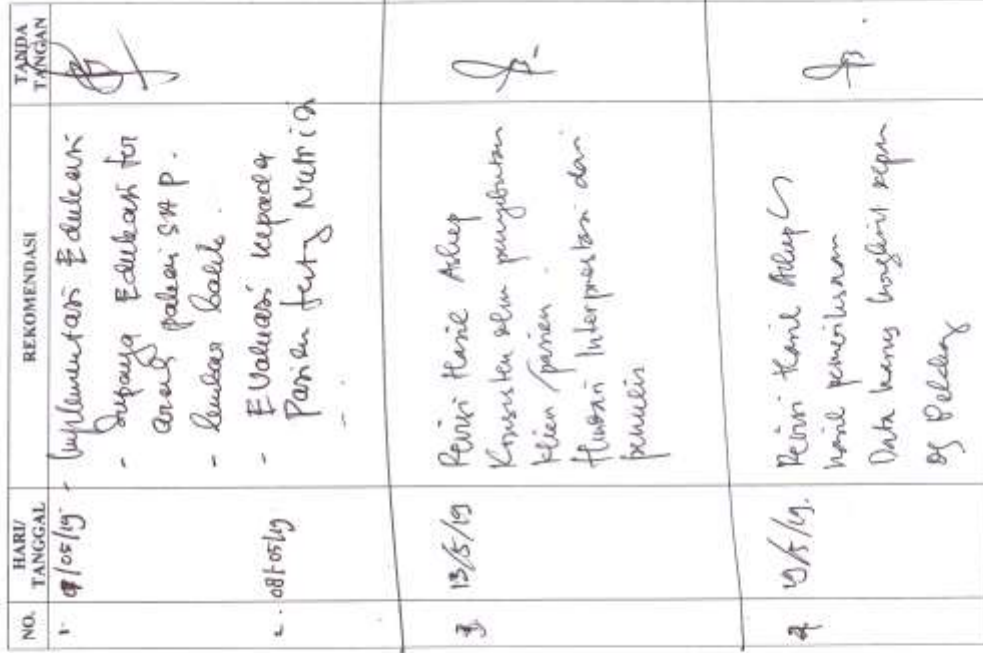 NO.
HARI/
TANGGAL
REKOMENDASI
TANDA
TANGAN
1.
07/05/19
- Implementasi Edukasi
- Supaya Edukasi ter
arah pakai SAP.
- lembar balik.
2.
08/05/19
- Evaluasi kepada
Pasien tentg Nutrisi
3.
13/5/19
Revisi Hasil Askep
Konsisten dlm penyebutan
klien/pasien
Hindari Interprestasi dari
penulis
4.
Revisi Hasil Askep
hasil pemeriksaan
Data harus